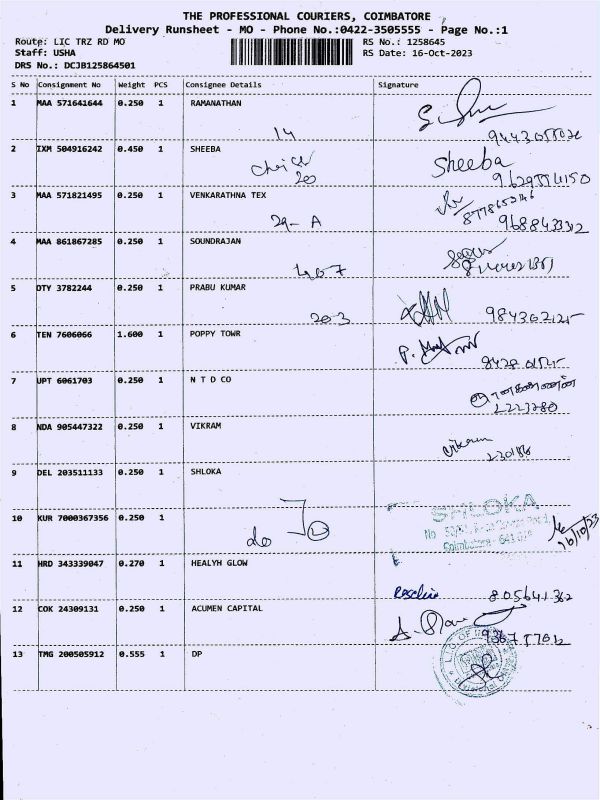 THE PROFESSIONAL COURIERS, COIMBATORE
Delivery Runsheet - MO - Phone No.:0422-3505555 - Page No.:1
Route: LIC TRZ RD MO RS No.: 1258645
Staff: USHA RS Date: 16-Oct-2023
DRS No.: DCJB125864501
S No Consignment No Weight PCS Consignee Details Signature
1 MAA 571641644 0.250 1 RAMANATHAN
14
2 IXM 504916242 0.450 1 SHEEBA Sheeba
20
3 MAA 571821495 0.250 1 VENKARATHNA TEX
29-A
4 MAA 861867285 0.250 1 SOUNDRAJAN
407
5 DTY 3782244 0.250 1 PRABU KUMAR
203
6 TEN 7606066 1.600 1 POPPY TOWR
7 UPT 6061703 0.250 1 N T D CO
2223280
8 NDA 905447322 0.250 1 VIKRAM
vikram
230186
9 DEL 203511133 0.250 1 SHLOKA
SHLOKA
10 KUR 7000367356 0.250 1
do Coimbatore 16/10/23
11 HRD 343339047 0.270 1 HEALYH GLOW
805641362
12 COK 24309131 0.250 1 ACUMEN CAPITAL
13 TMG 200505912 0.555 1 DP